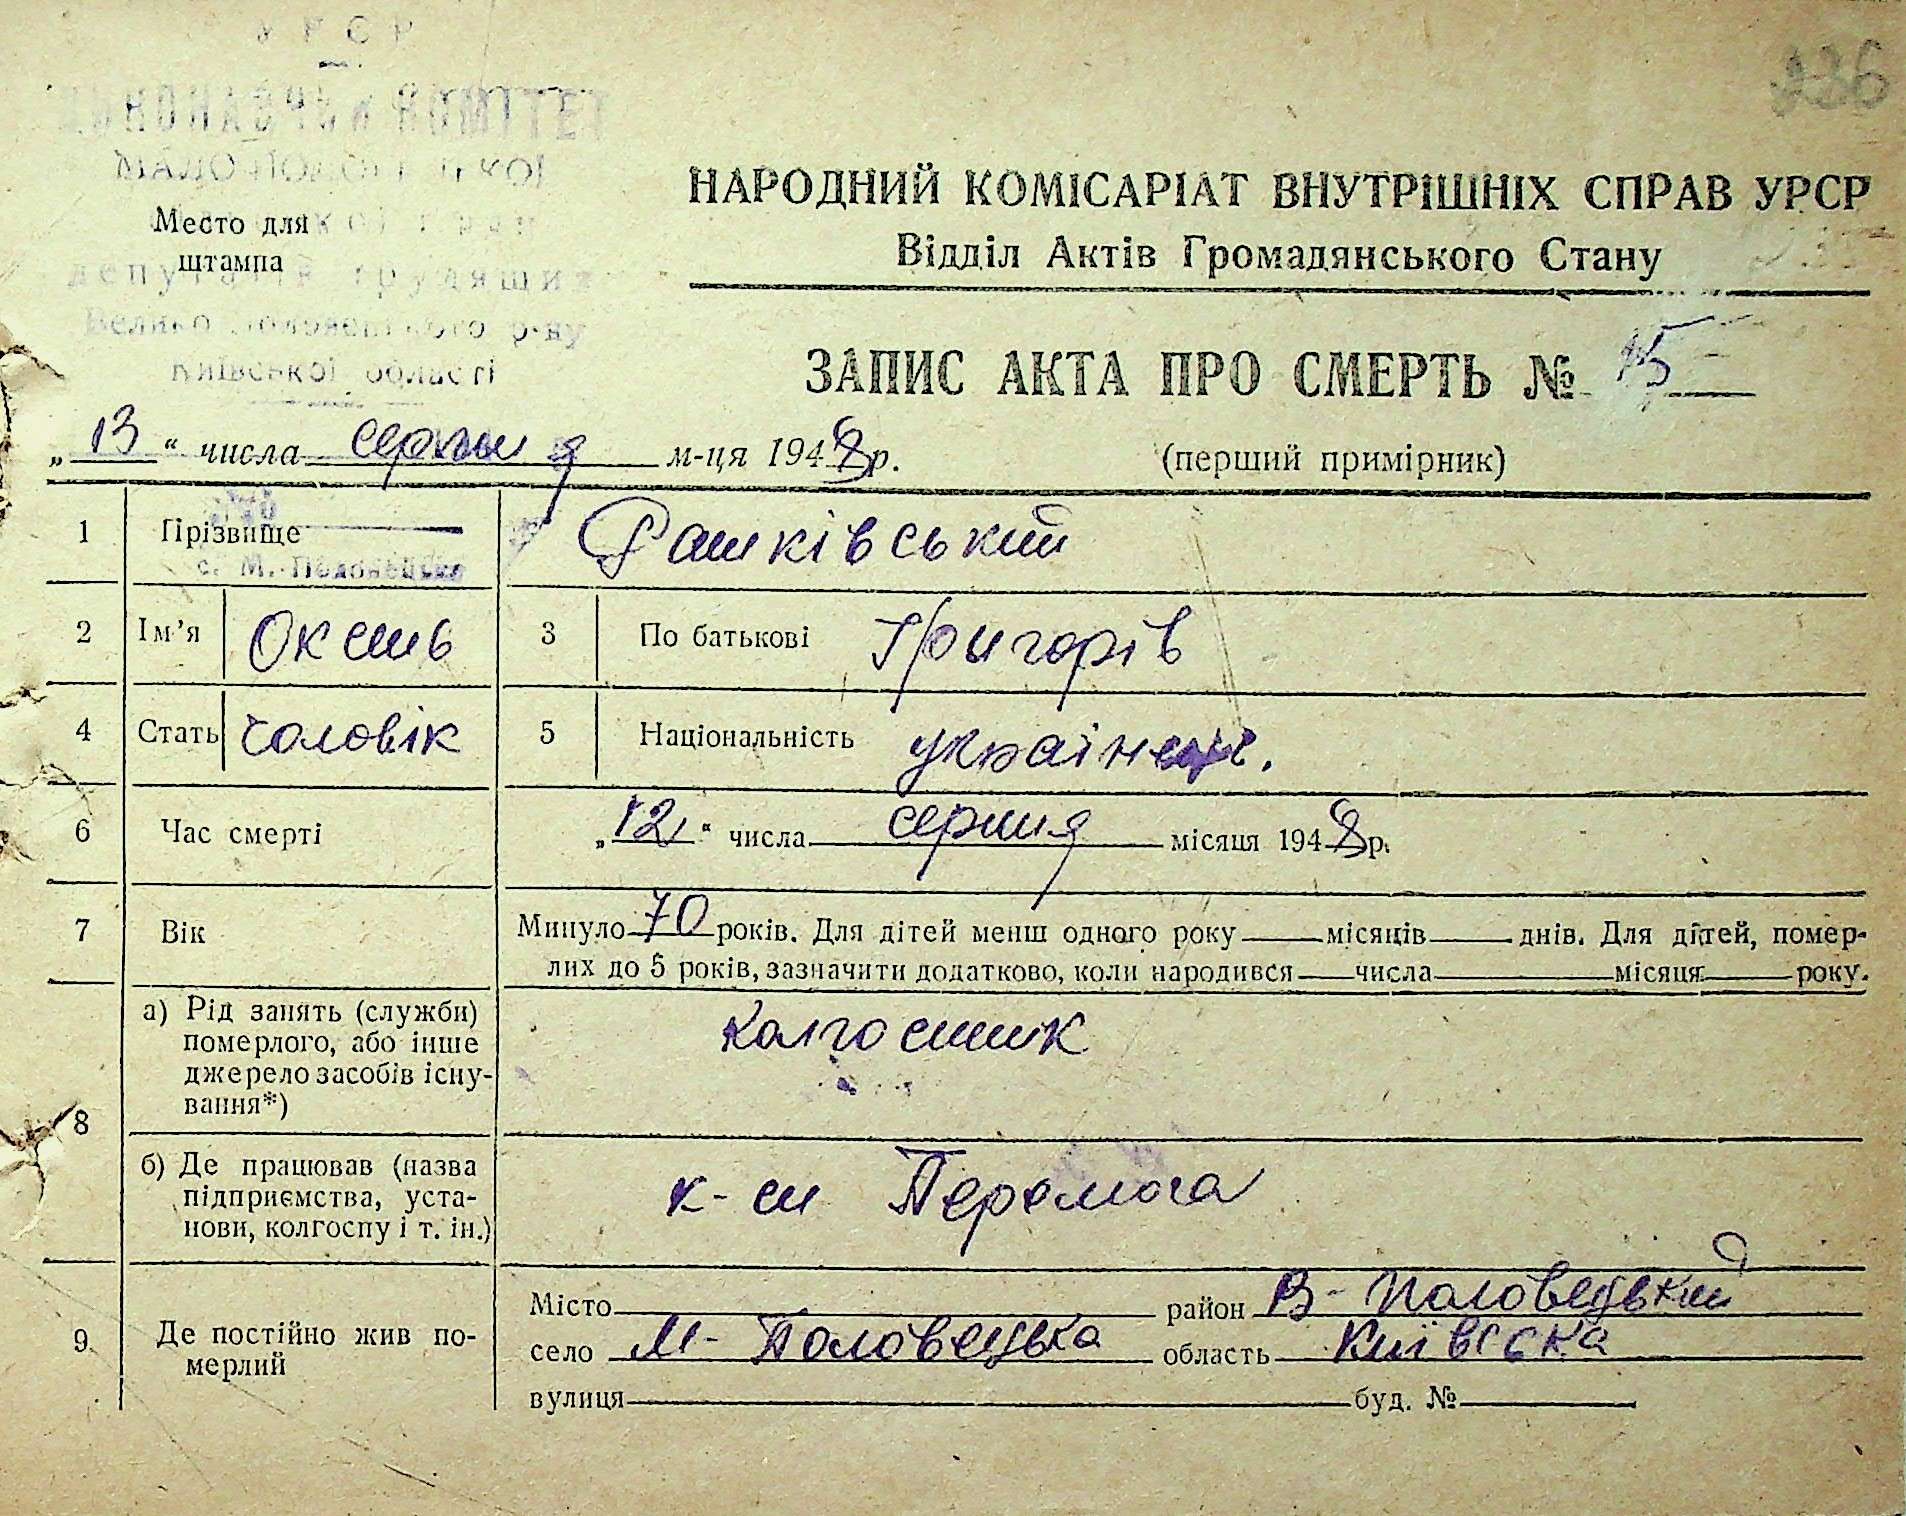 УРСР
КОМІТЕТ
236
НАРОДНИЙ КОМІСАРІАТ ВНУТРІШНІХ СПРАВ УРСР
Место для
штампа
Відділ Актів Громадянського Стану
депутатів трудящих
Велико Половецького р-ну
Київської області
ЗАПИС АКТА ПРО СМЕРТЬ № 15
„13“ числа серпня м-ця 1948 р.
(перший примірник)
1 Прізвище Рашківський
с. М.-Половецьке
2 Ім’я Оксень 3 По батькові Григорів
4 Стать чоловік 5 Національність українець.
6 Час смерті „12“ числа серпня місяця 1948 р.
7 Вік Минуло 70 років. Для дітей менш одного року місяців днів. Для дітей, помер-
лих до 5 років, зазначити додатково, коли народився числа місяця року.
8 а) Рід занять (служби)
померлого, або інше
джерело засобів існу-
вання*)
колгоспник
б) Де працював (назва
підприємства, уста-
нови, колгоспу і т. ін.)
к-сп Перемога
9 Де постійно жив по-
мерлий
Місто район В-Половецький
село М-Половецька область Київська
вулиця буд. №